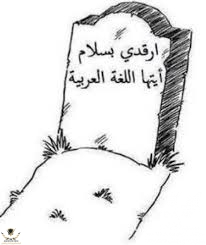 ارقدي بسلام
أيتها اللغة العربية